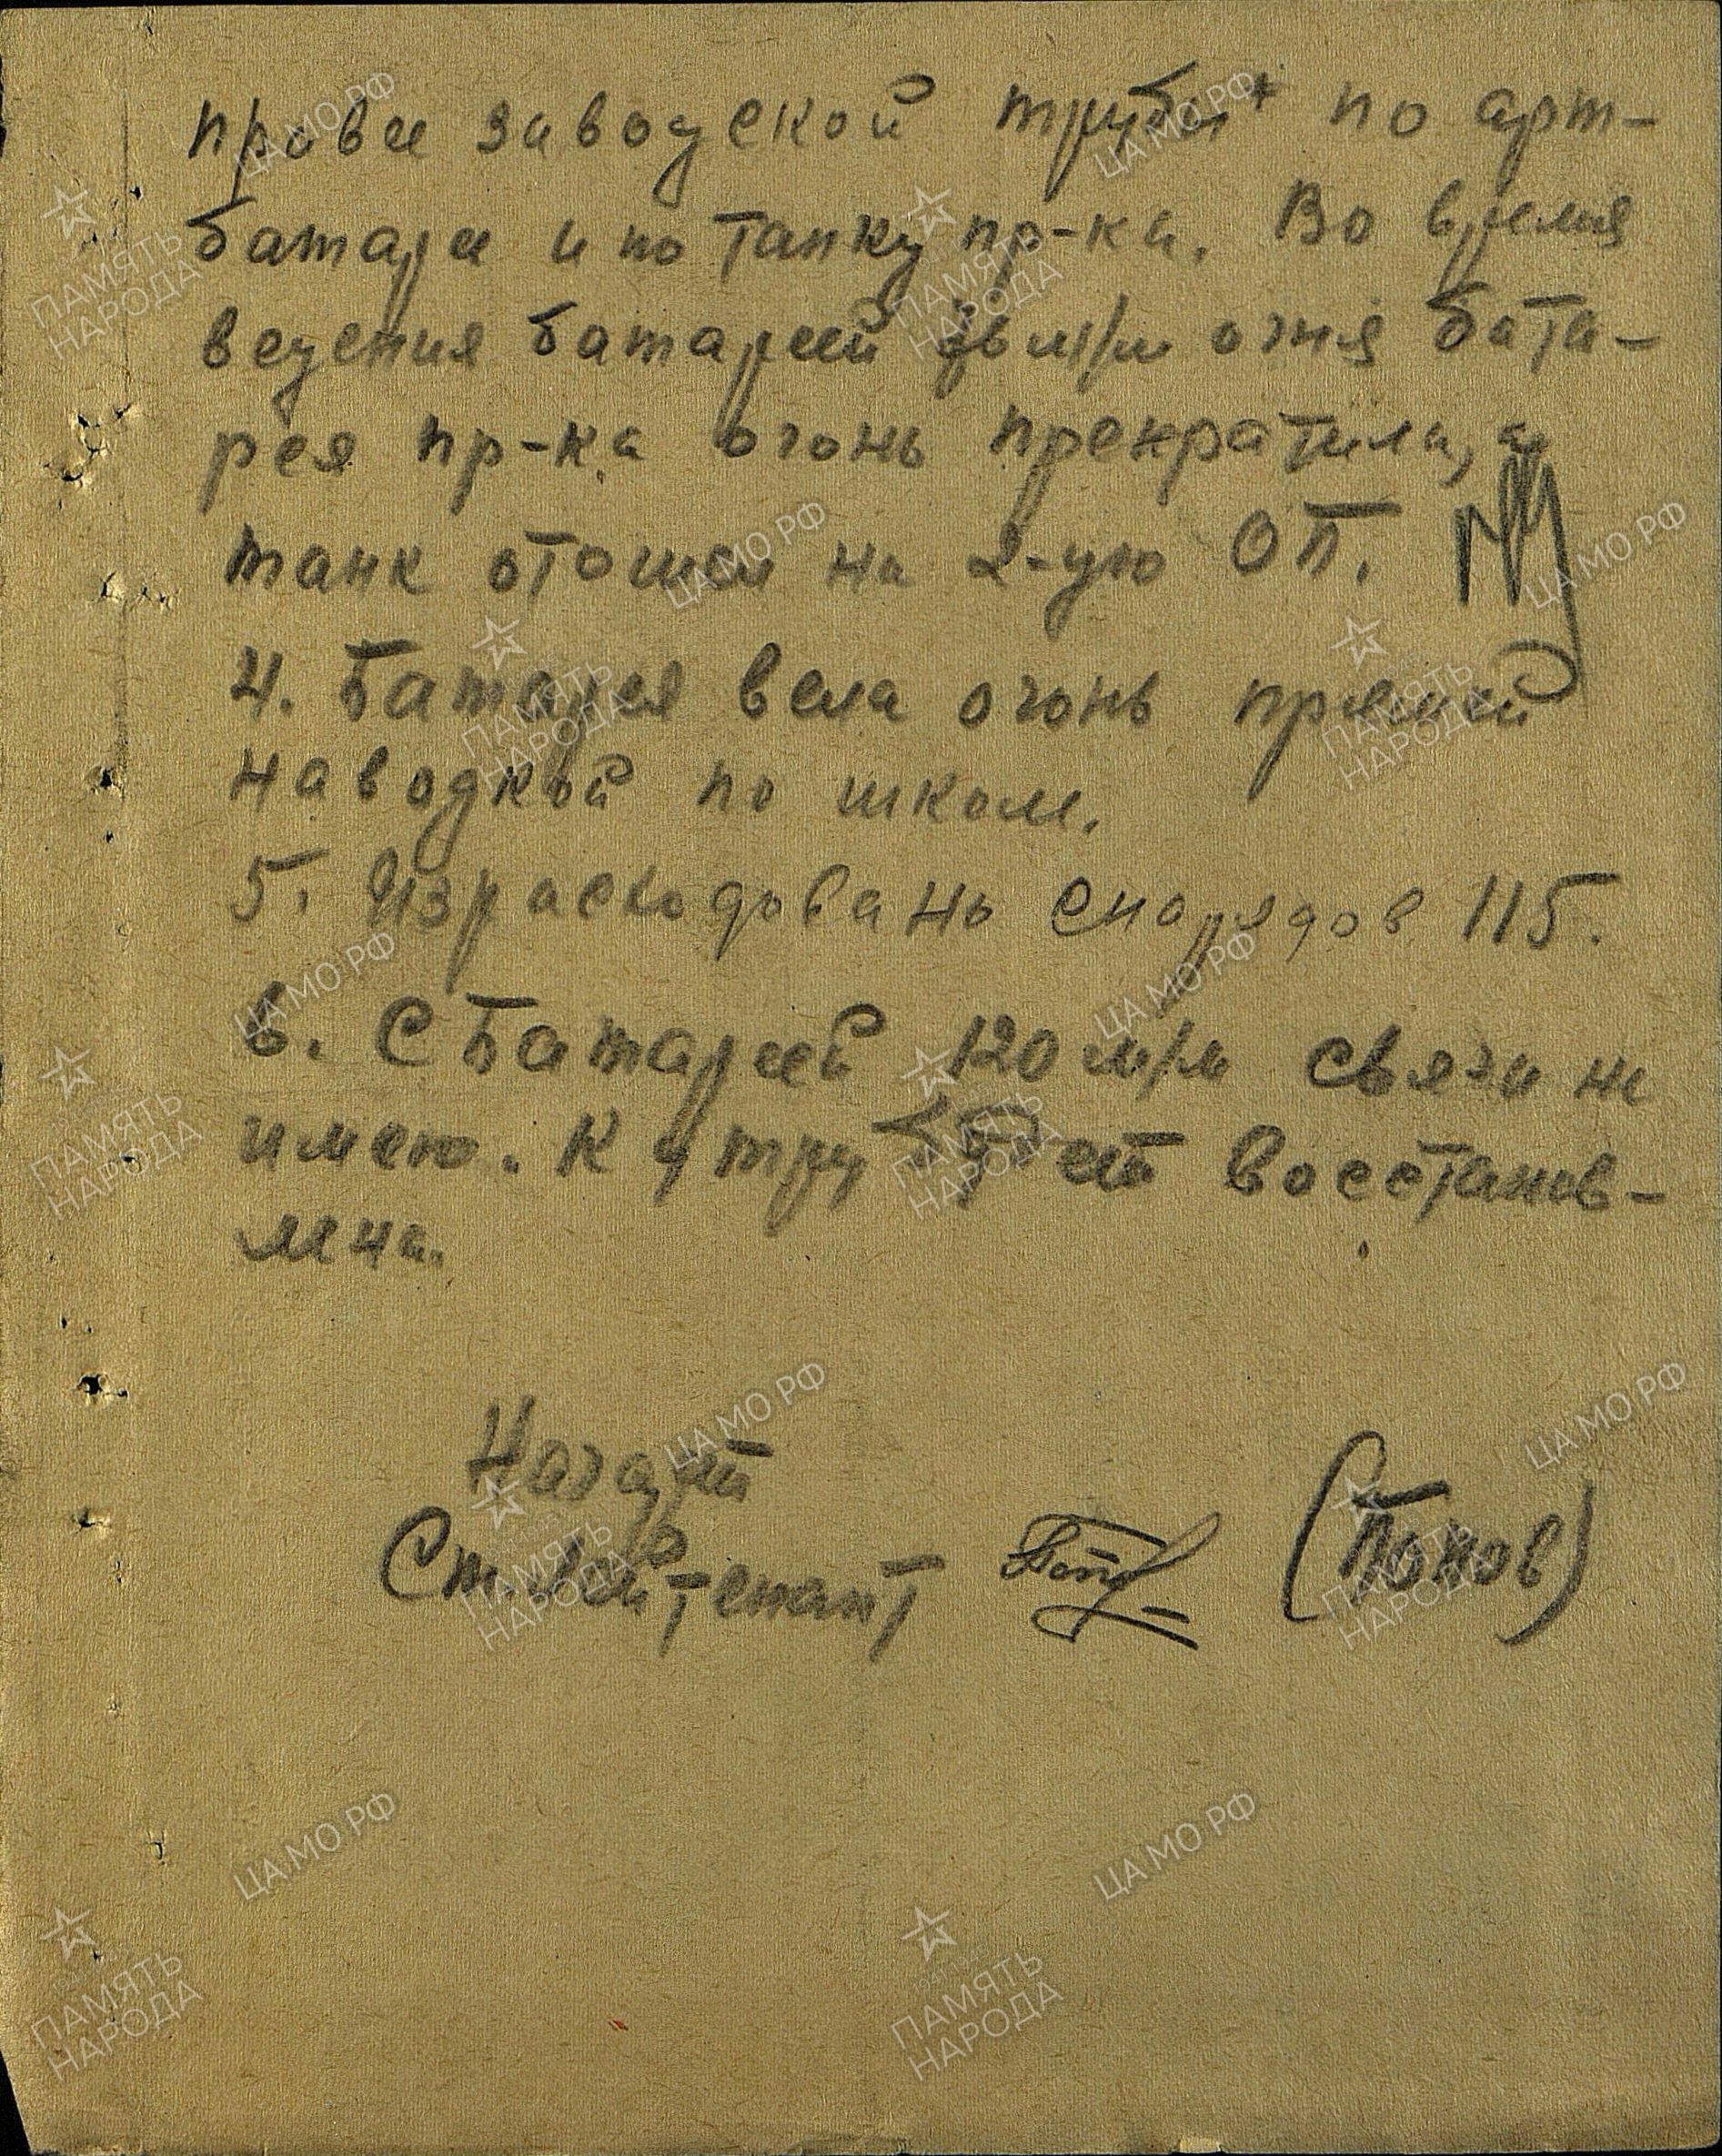 правее заводской трубы по арт-
батареи и по танку пр-ка. Во время
ведения батареей м/м огня бата-
рея пр-ка огонь прекратила, а
танк отошел на 2-ую ОП.
4. Батарея вела огонь прямой
наводкой по школе.
5. Израсходовано снарядов 115.
6. С батареей 120 м/м связи не
имею. К утру будет восстанов-
лена.
Начарт
Ст. лейтенант (Попов)
ЦА МО РФ
ПАМЯТЬ
НАРОДА